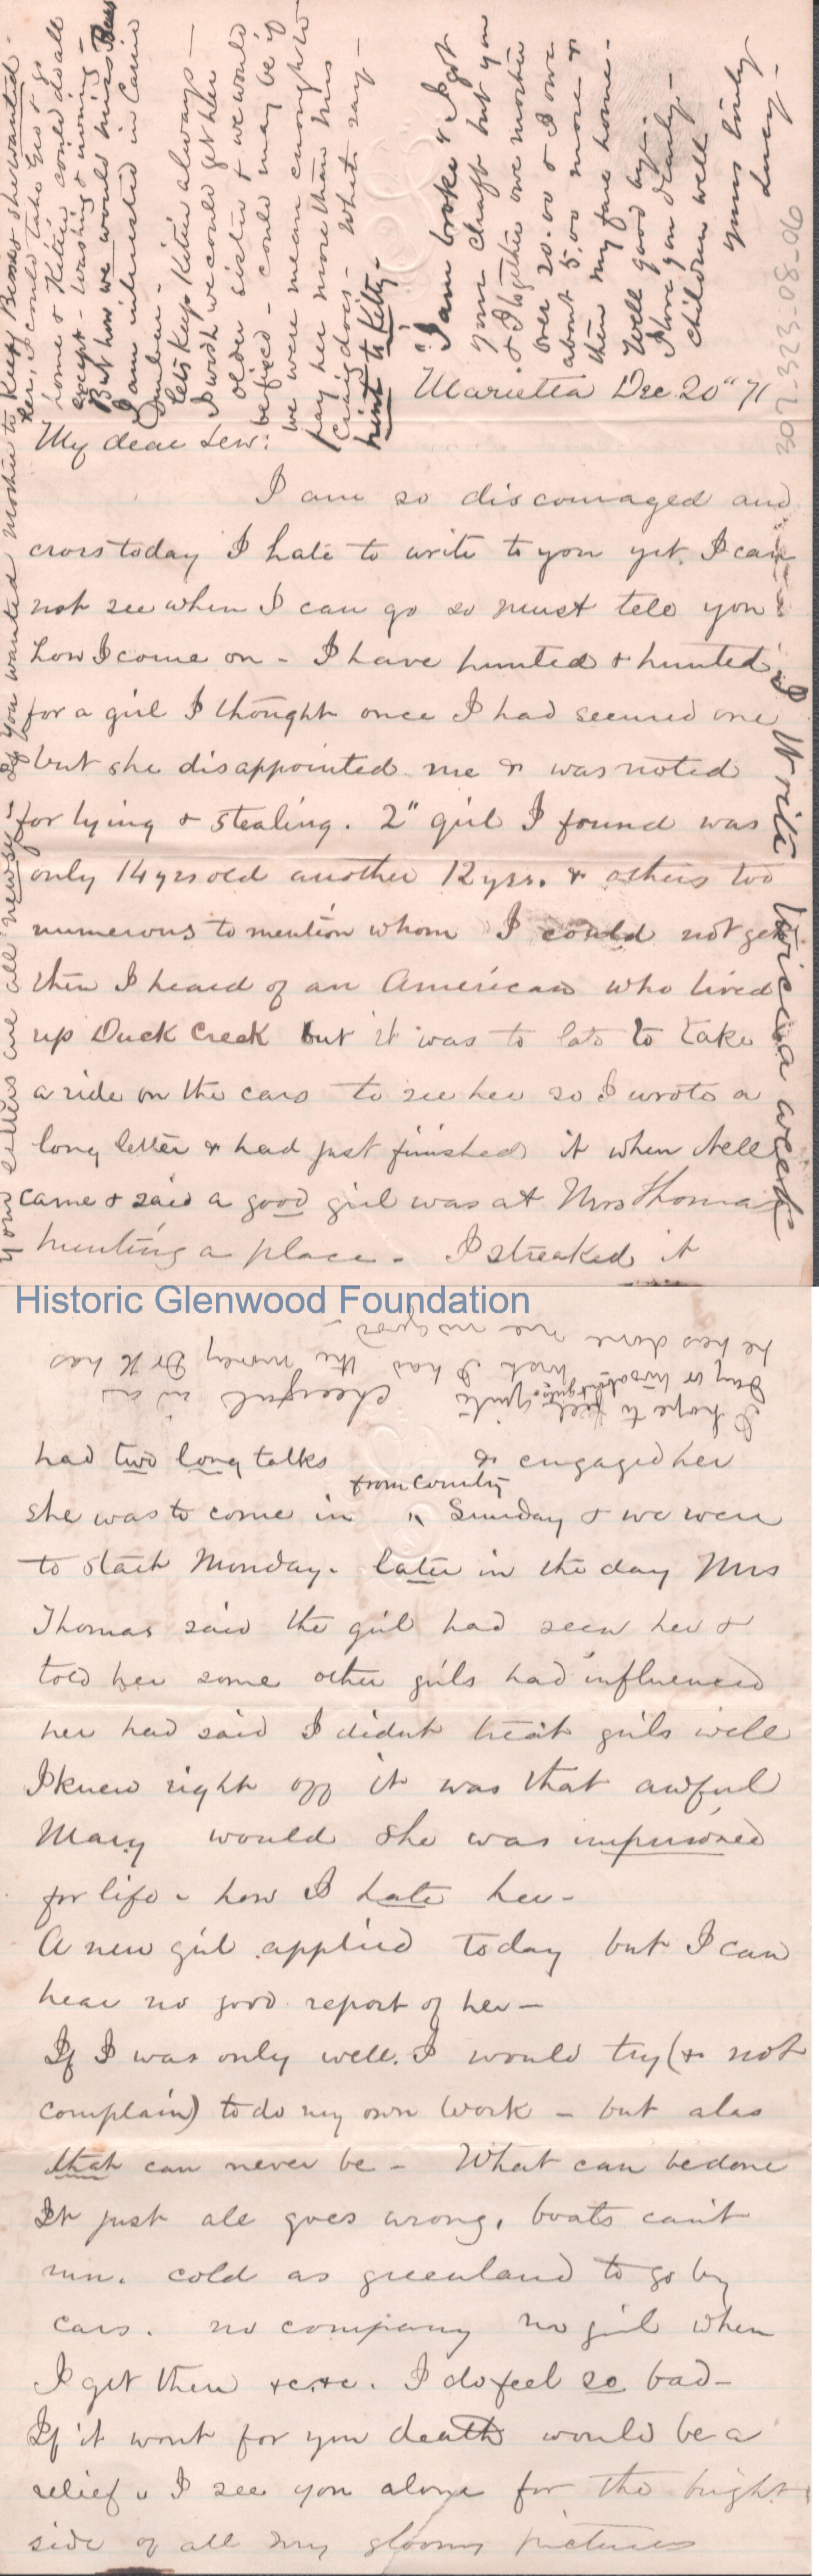 Marietta Dec 20" 71
My dear Lew:
I am so discouraged and
cross today I hate to write to you yet I can
not see when I can go so must tele you
how I come on - I have hunted & hunted
for a girl I thought once I had secured one
but she disappointed me & was noted
for lying & stealing. 2" girl I found was
only 14 yrs old another 12 yrs. & others too
numerous to mention whom I could not get
then I heard of an American who lived
up Duck Creek but it was to late to take
a ride on the cars to see her so I wrote a
long letter & had just finished it when Nell
came & said a good girl was at Mrs Thomas
hunting a place - I streaked it
Historic Glenwood Foundation
had two long talks & engaged her
from country
she was to come in " Sunday & we were
to start Monday. later in the day Mrs
Thomas said the girl had seen her &
told her some other girls had influenced
her had said I didnt treat girls well
I knew right off it was that awful
Mary would she was imprisoned
for life - how I hate her -
A new girl applied today but I can
hear no good report of her -
If I was only well. I would try (& not
complain) to do my own work - but alas
that can never be - What can be done
It just all goes wrong. boats can't
run. cold as greenland to go by
cars. no company no girl when
I get there &c. &c. I do feel so bad -
If it wont for you death would be a
relief. I see you alone for the bright
side of all my gloomy pictures
I hope to feel quite cheerful in a
day or two
but I has the money Dr H has
he has done me no good -
your letters are all newsy If you wanted mother to keep Bessie she wanted
her, I could take Geo & go
home & Kitty could do all
except - washing & ironing -
But how we would miss Bess
I am interested in Carrie
Lets keep Kitty always -
I wish we could get her
older sister & we would
be fixed - could may be if
we were mean enough to
pay her more than Mrs
Craig does - What say -
hint to Kitty -
"I am broke & I got
your draft but you
& I together owe mother
over 20.00 & I owe
about 5.00 more &
then my fare home -
Well good bye -
I love you dearly -
children well
yours truly
Lucy -
Write twice a week
307-323-08-06